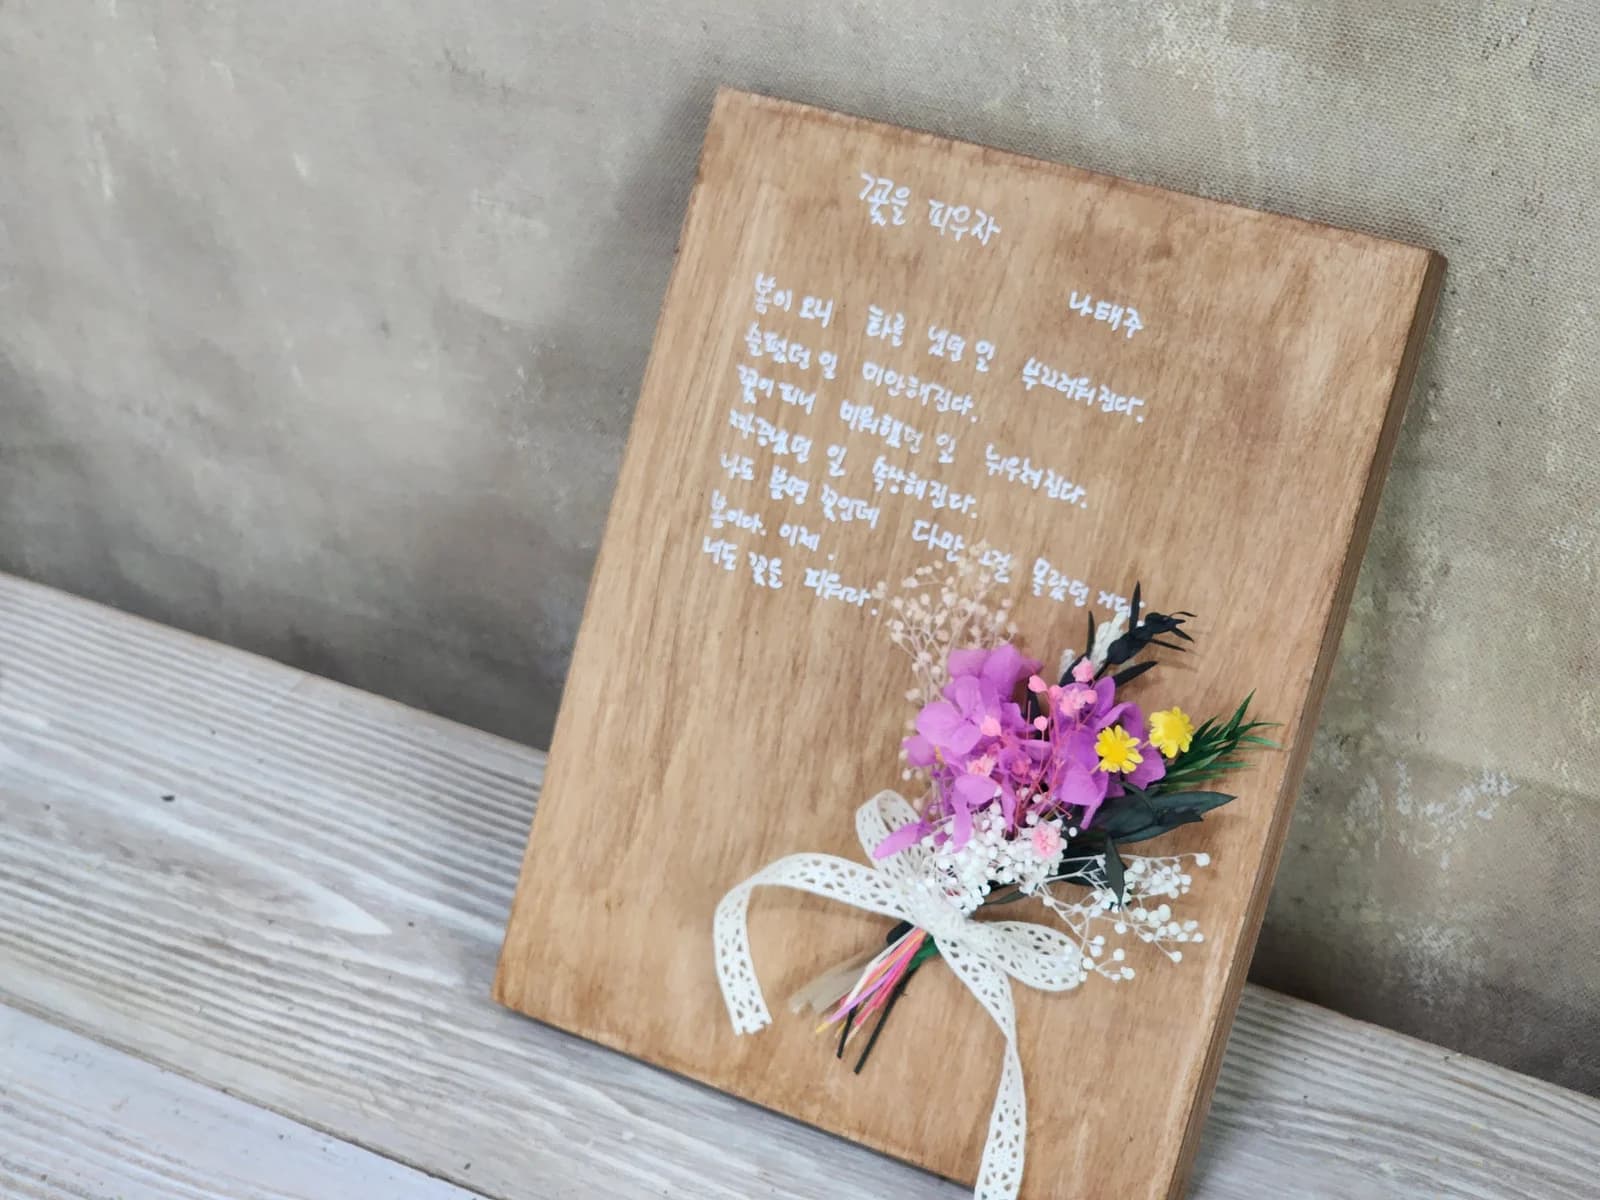 꽃을 피우자
나태주
봄이 오니 화를 냈던 일 부끄러워진다.
슬펐던 일 미안해진다.
꽃이 피니 미워했던 일 뉘우쳐진다.
짜증냈던 일 속상해진다.
나도 분명 꽃인데 다만 그걸 몰랐던 거다.
봄이다. 이제.
너도 꽃을 피워라.